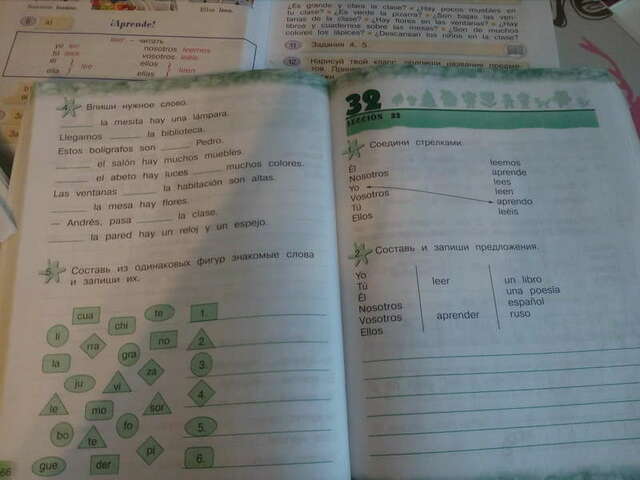 ¡Aprende!
leer — читать
yo leo
tú lees
él
ella
lee
nosotros leemos
vosotros leéis
ellos
ellas
leen
¿Es grande y clara la clase? • ¿Hay pocos muebles en
tu clase? • ¿Es verde la pizarra? • ¿Son bajas las ven-
tanas de la clase? • ¿Hay flores en las ventanas? • ¿Hay
libros y cuadernos sobre las mesas? • ¿Son de muchos
colores los lápices? • ¿Descansan los niños en la clase?
11 Задания 4, 5.
12 Нарисуй твой класс
4 Впиши нужное слово.
______ la mesita hay una lámpara.
Llegamos ______ la biblioteca.
Estos bolígrafos son ______ Pedro.
______ el salón hay muchos muebles.
______ el abeto hay luces ______ muchos colores.
Las ventanas ______ la habitación son altas.
______ la mesa hay flores.
— Andrés, pasa ______ la clase.
______ la pared hay un reloj y un espejo.
5 Составь из одинаковых фигур знакомые слова
и запиши их.
cua te 1.
li chi
rra no 2.
la gra 3.
za
ju vi 4.
le mo sor
fo 5.
bo te
pi 6.
gue der
66
32
LECCIÓN 32
1 Соедини стрелками.
Él leemos
Nosotros aprende
Yo lees
Vosotros leen
Tú aprendo
Ellos leéis
2 Составь и запиши предложения.
Yo
Tú leer un libro
Él una poesía
Nosotros español
Vosotros aprender ruso
Ellos